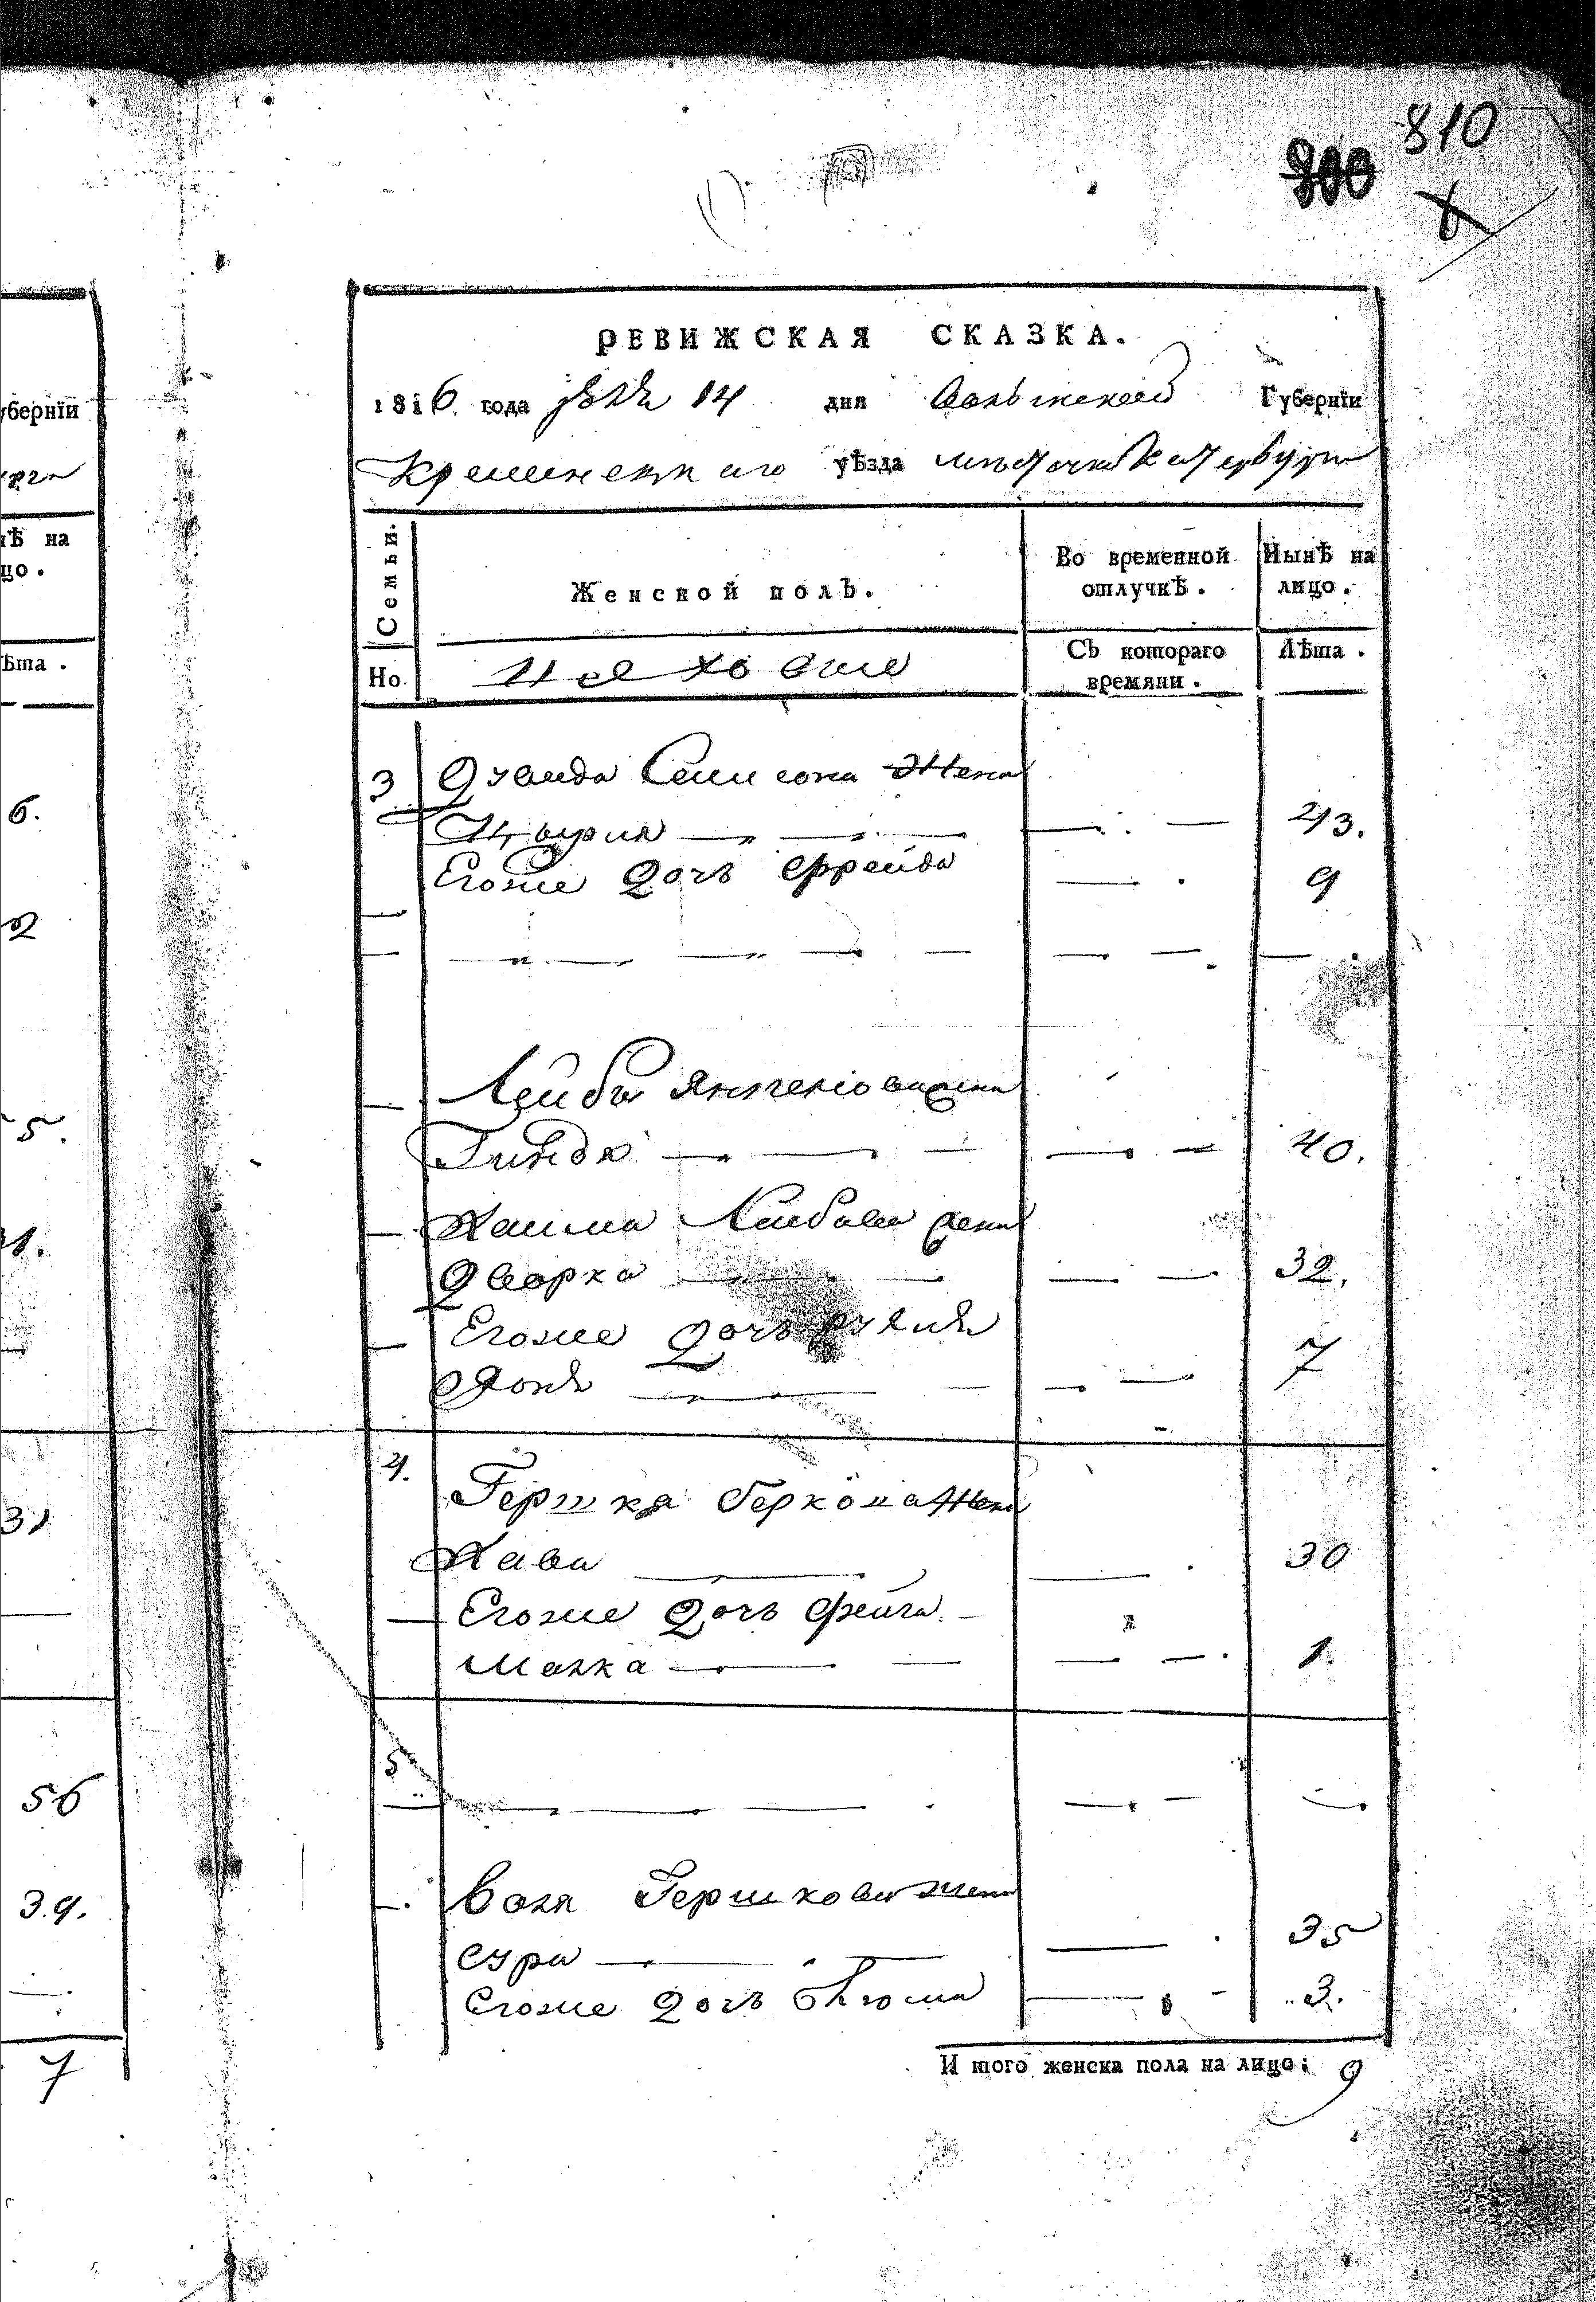 810
800
РЕВИЖСКАЯ СКАЗКА.
1816 года 14 дня Волынской Губернїи
Кременецкаго уѣзда местечка Катербурга
Семьи. Женской полъ. Во временной отлучкѣ. Нынѣ на лицо.
Но. Съ котораго времяни. Лѣта.
3 Жена
43.
Егоже дочь Фрейда 9
Лейбы жена
Гинда 40.
Хаима Лейбова жена
Дворка 32.
Егоже дочь
7
4. Гершка Беркова Жена
Хава 30
Егоже дочь Фейга
Малка 1.
5
Воля Гершкова жена
Сура 35
Егоже дочь Блюма 3.
И того женска пола на лицо: 9
убернїи
нѣ на
цо.
ѣта.
6.
2
5.
31
56
39.
7